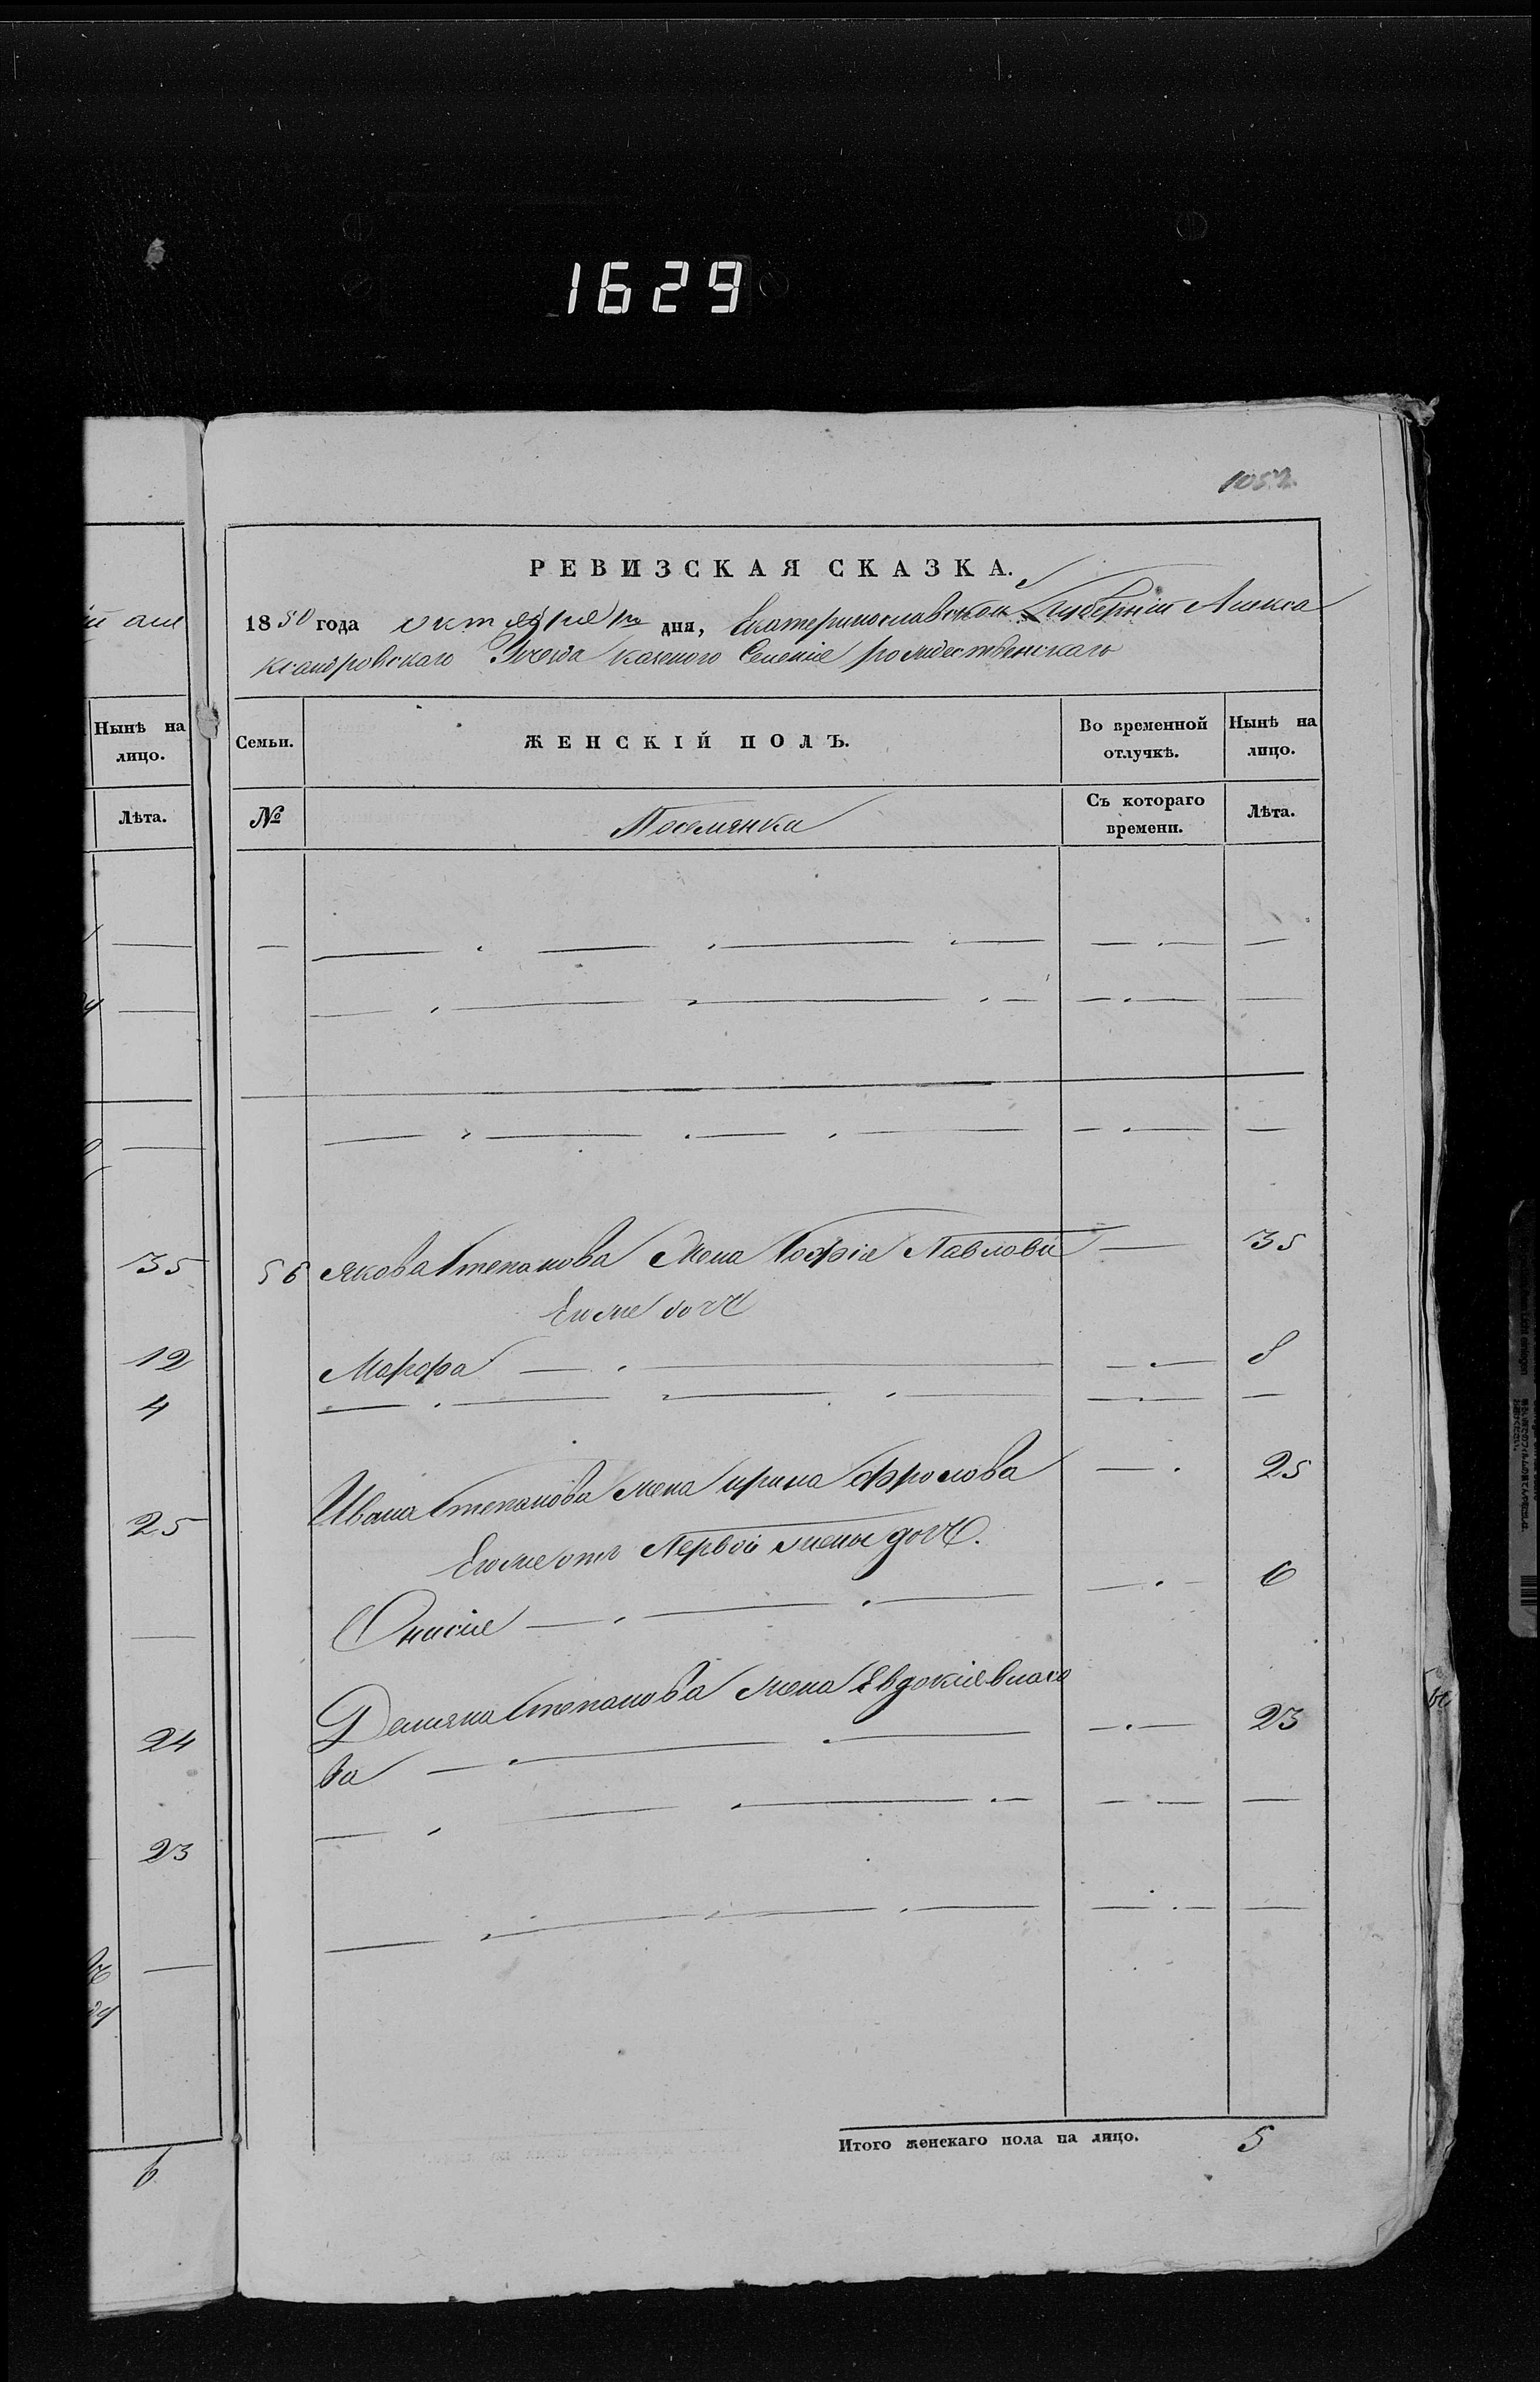 1629
1052.
РЕВИЗСКАЯ СКАЗКА.
1850 года октября дня, Екатеринославской Губерніи Алекса
ксандровскаго Уезда казеного Селение рождественскаго
Нынѣ на лицо.
Семьи.
ЖЕНСКІЙ ПОЛЪ.
Во временной отлучкѣ.
Нынѣ на лицо.
Лѣта.
№
Поселянка
Съ котораго времени.
Лѣта.
35
56 Якова Степанова Жена Софія Павлова 35
Его же доч
12
Марфа 8
4
Ивана Степанова жена ирина Фролова 25
25
Его же отъ Первой жены доч.
Онисие 6
Демяна Степанова жена Евдокие власо
24
ва 23
23
Итого женскаго пола на лицо. 5
6